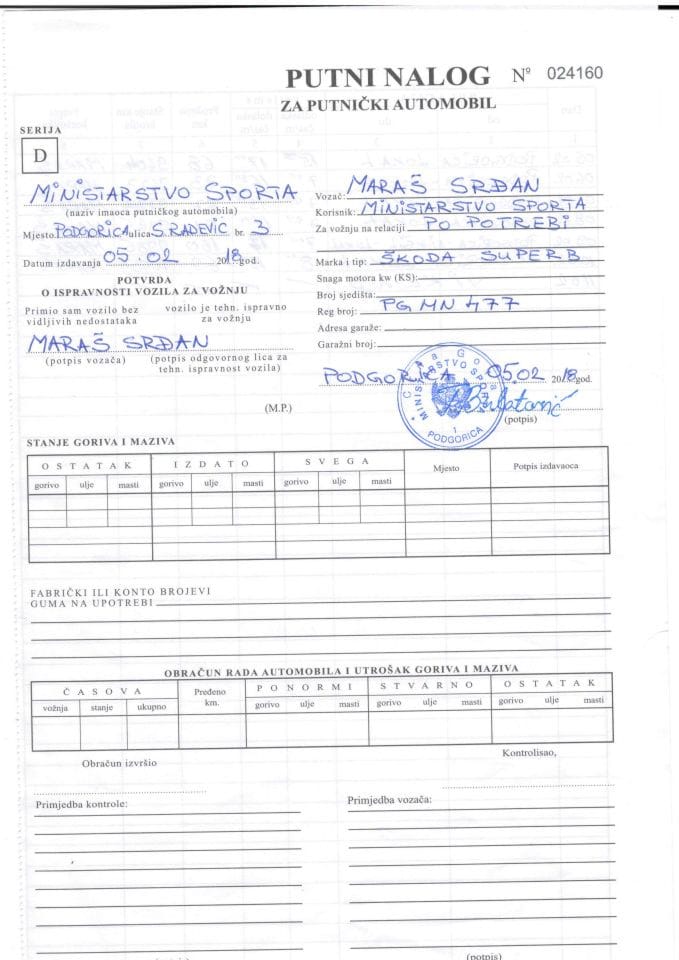 PUTNI NALOG Nº 024160
ZA PUTNIČKI AUTOMOBIL
SERIJA
D
MINISTARSTVO SPORTA
(naziv imaoca putničkog automobila)
Mjesto PODGORICA ulica S. RADEVIĆ br. 3
Datum izdavanja 05.02 2018 god.
POTVRDA
O ISPRAVNOSTI VOZILA ZA VOŽNJU
Primio sam vozilo bez vidljivih nedostataka
vozilo je tehn. ispravno za vožnju
MARAŠ SRĐAN
(potpis vozača)
(potpis odgovornog lica za tehn. ispravnost vozila)
(M.P.)
Vozač: MARAŠ SRĐAN
Korisnik: MINISTARSTVO SPORTA
Za vožnju na relaciji: PO POTREBI
Marka i tip: ŠKODA SUPERB
Snaga motora kw (KS):
Broj sjedišta:
Reg broj: PG MN 477
Adresa garaže:
Garažni broj:
PODGORICA 05.02 2018 god.
(potpis)
Crna Gora
MINISTARSTVO SPORTA
1
PODGORICA
STANJE GORIVA I MAZIVA
OSTATAK IZDATO SVEGA Mjesto Potpis izdavaoca
gorivo ulje masti gorivo ulje masti gorivo ulje masti
FABRIČKI ILI KONTO BROJEVI
GUMA NA UPOTREBI
OBRAČUN RADA AUTOMOBILA I UTROŠAK GORIVA I MAZIVA
ČASOVA Pređeno km. PO NORMI STVARNO OSTATAK
vožnja stanje ukupno gorivo ulje masti gorivo ulje masti gorivo ulje masti
Obračun izvršio
Kontrolisao,
Primjedba kontrole:
Primjedba vozača:
(potpis)